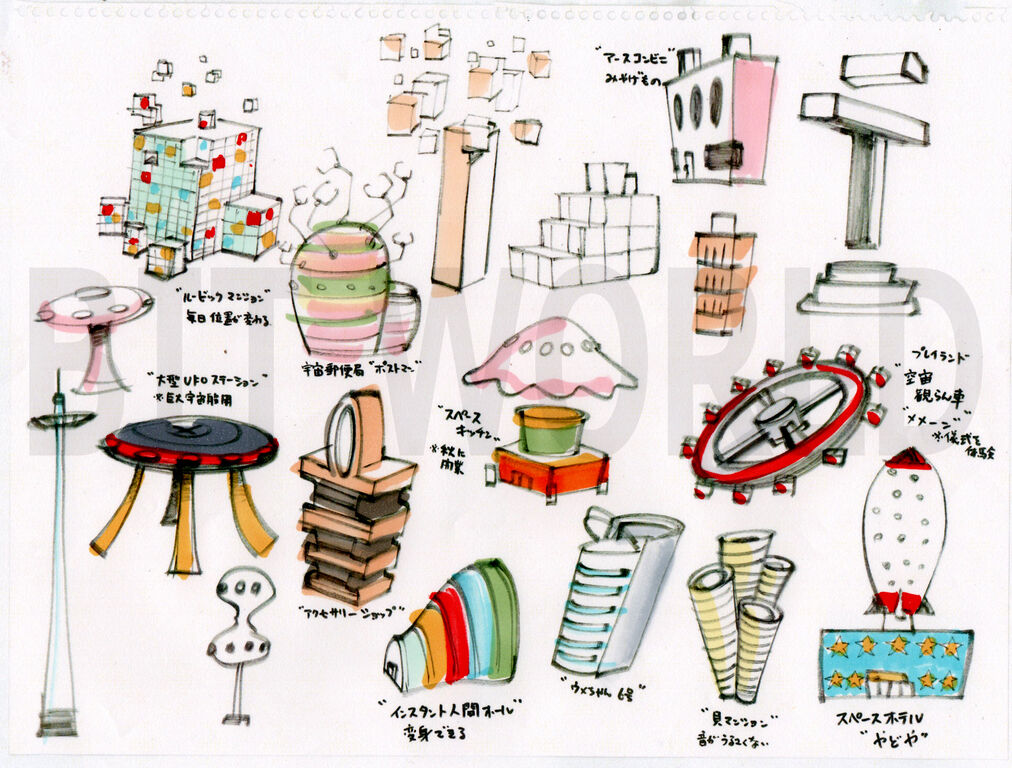 "アースコンビニ"
みやげもの
"ルービック マンション"
毎日 位置が変わる
宇宙郵便局 "ポストマン"
BIT WORLD
"大型 UFO ステーション"
※巨大宇宙船用
"スペース
キッチン"
※秋に
開業
プレイランド
"空宙
観らん車
"メメーン"
※儀式を
体験
"アクセサリー ショップ"
"インスタント人間ホール"
変身できる
"ウメちゃん 6号"
"貝マンション"
音がうるさくない
スペースホテル
"やどや"